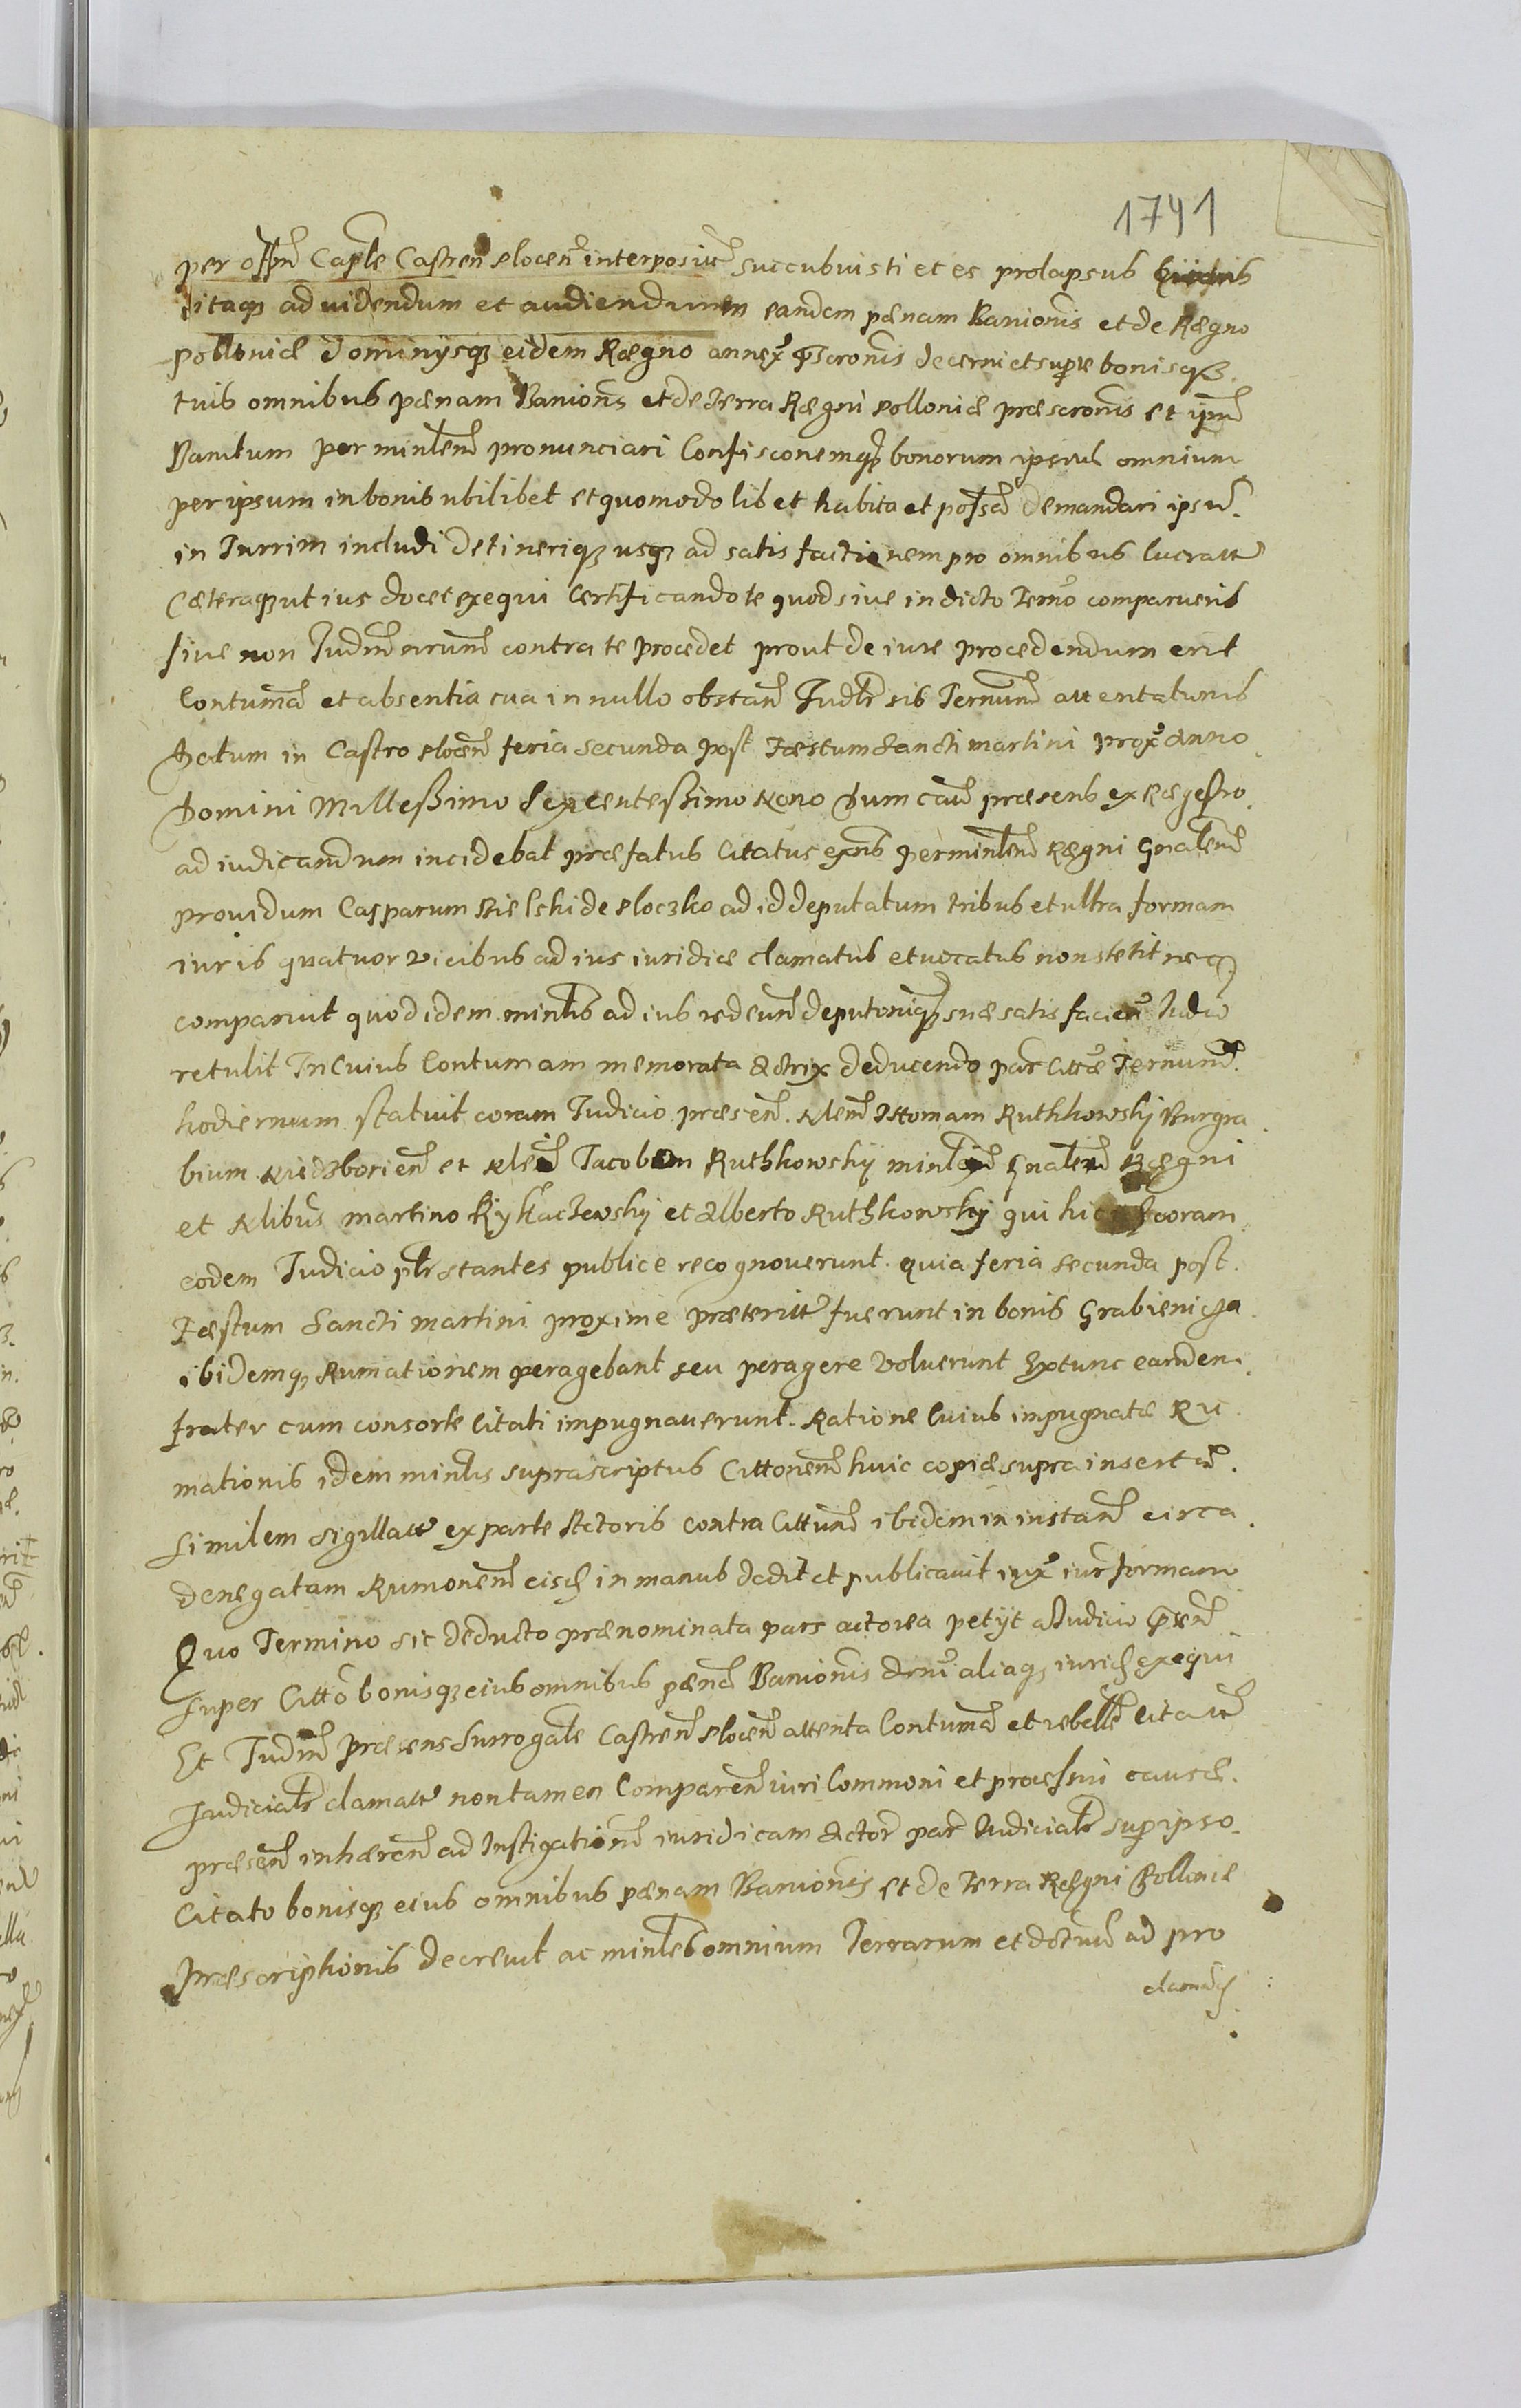 1741
per offm Caple Castren plocen interposit succubuisti et es prolapsus
itaq ad videndum et audiendum eandem pænam Banionis et de Rægno
polloniæ dominysq eidem Rægno annex pscronis decerni et super te bonisq
tuis omnibus pænam Banionis et de terra Rægni polloniæ præscronis et ipm
Banitum per minlem pronunciari Confisconemq bonorum ipsius omnium
per ipsum in bonis ubilibet et quomodolibet habita et possa demandari ipsu
in Turrim includi detineriq usq ad satisfactionem pro omnibus lucratt
Cæteraq ut ius docet exequi Certificando te quod sive in dicto termo comparueris
sive non Judm nrum contra te procedet prout de iure procedendum erit
Contuma et absentia tua in nullo obstan Judlr sis Ternum attentaturus
Datum in Castro plocen feria secunda post Fæstum Sancti martini prox Anno
Domini Millessimo Sexcentessimo Nono Dum caus præsens ex Rægestro
ad iudicandum incidebat præfatus Citatus exns per minlem Rægni Gnalem
providum Casparum Bielski de ploczko ad id deputatum tribus et ultra formam
iuris quatuor vicibus ad ius iuridice clamatus et vocatus non stetit neq
comparuit quod idem minlis ad ius redeun deputoniq suæ satisfacien Judio
retulit In Cuius Contumam memorata Actrix deducendo par Cittæ Ternum
hodiernum statuit coram Judicio præsen Nlem Thomam Ruthkowsky Burgra
bium Niedzborien et Nlem Jacobum Ruthkowsky minlem Gnalem Rægni
et Nlibus martino Rykaczewsky et Alberto Ruthkowsky qui hic coram
eodem Judicio plr stantes publice recognoverunt quia feria secunda post
Fæstum Sancti martini proxime præteritt fuerunt in bonis Grabienicza
ibidemq Rumationem peragebant seu peragere voluerunt Extunc eandem
frater cum consorte Citati impugnaverunt Ratione Cuius impugnatæ Ru
mationis idem minlis suprascriptus Cittonem huic copiæ supra insertæ
Similem sigillatt ex parte Actoris contra Cittum ibidem in instan circa
denegatam Rumonem eisd in manus dedit et publicavit iux iur formam
Quo Termino sic deducto prænominata pars actorea petijt a Judicio psen
Super Citto bonisq eius omnibus pæna Banionis decrni aliaq iuris exequi
Et Judm præsens Surrogale Castren plocen attenta Contuma et rebelle Citatt
Judicialr clamatt non tamen Comparen iuri Commoni et processui causæ
præsen inhæren ad Instigationem iuridicam Actor par Judicialr sup ipso
Citato bonisq eius omnibus pænam Banionis et de terra Rægni Polloniæ
Præscriptionis decrevit ac minles omnium Terrarum et dctum ad pro
clamand